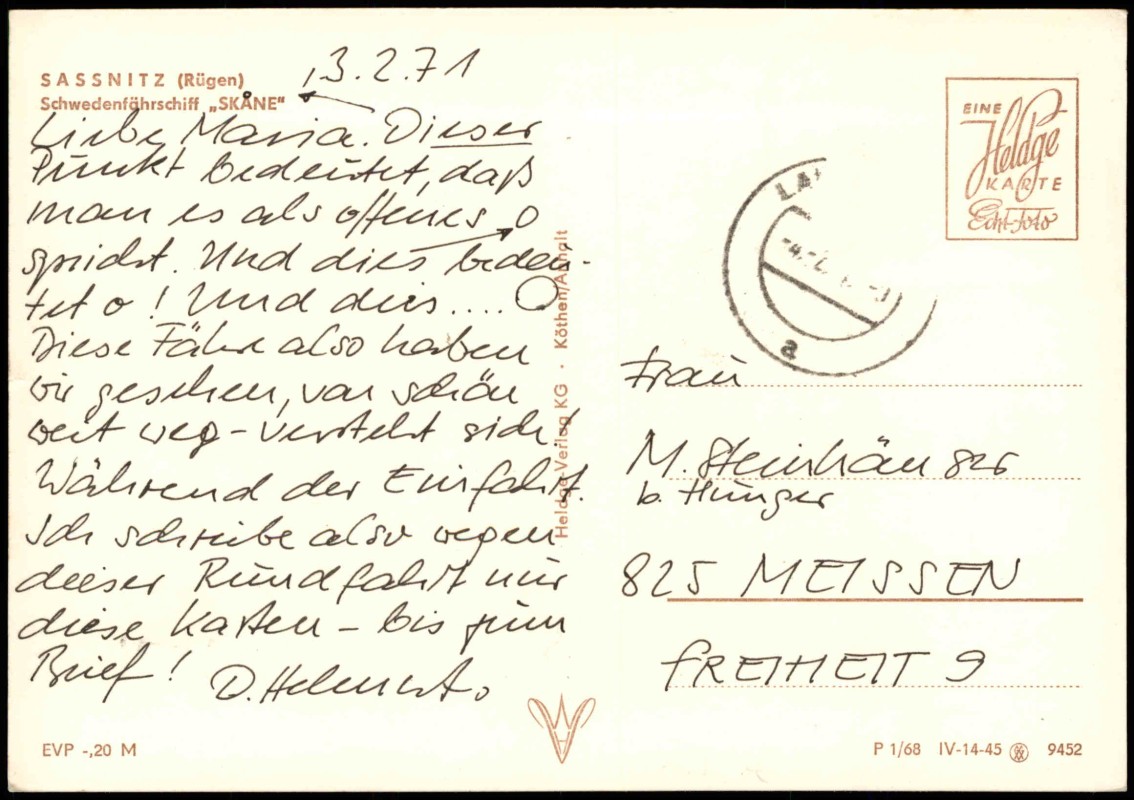 SASSNITZ (Rügen)
Schwedenfährschiff „SKÅNE"
3.2.71
Liebe Maria. Dieser
Punkt bedeutet, daß
man es als offenes o
spricht. Und dies bedeu-
tet o! Und dies.... O
Diese Fähre also haben
wir gesehen, von schön
weit weg – versteht sich!
Während der Einfahrt.
Ich schreibe also wegen
dieser Rundfahrt nur
diese Karten – bis zum
Brief! D. Helmut.
EVP -,20 M
Heldge-Verlag KG · Köthen/Anhalt
EINE
Heldge
KARTE
Echt-Foto
LA
-4.-2.
a
Frau
M. Steinhäuser
b. Hunger
825 MEISSEN
FREIHEIT 9
P 1/68 IV-14-45 9452